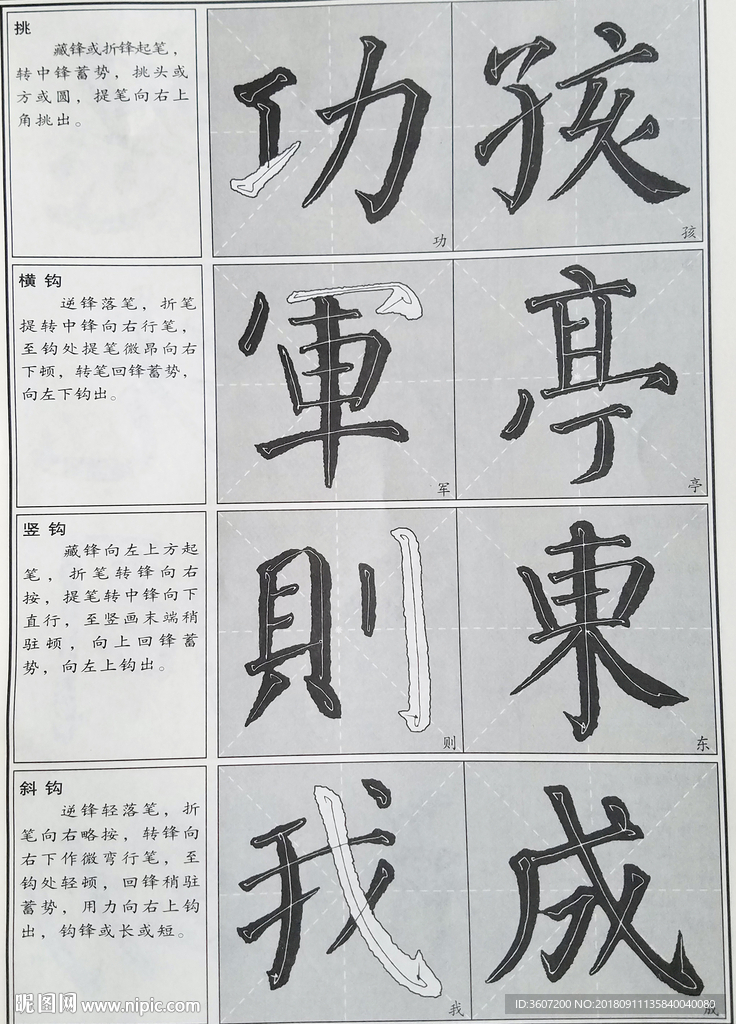 挑
藏锋或折锋起笔，
转中锋蓄势，挑头或
方或圆，提笔向右上
角挑出。
功 孩
功 孩
横钩
逆锋落笔，折笔
提转中锋向右行笔，
至钩处提笔微昂向右
下顿，转笔回锋蓄势，
向左下钩出。
軍 亭
军 亭
竖钩
藏锋向左上方起
笔，折笔转锋向右
按，提笔转中锋向下
直行，至竖画末端稍
驻顿，向上回锋蓄
势，向左上钩出。
則 東
则 东
斜钩
逆锋轻落笔，折
笔向右略按，转锋向
右下作微弯行笔，至
钩处轻顿，回锋稍驻
蓄势，用力向右上钩
出，钩锋或长或短。
我 成
我 成
昵图网 www.nipic.com
ID:3607200 NO:20180911135840040080